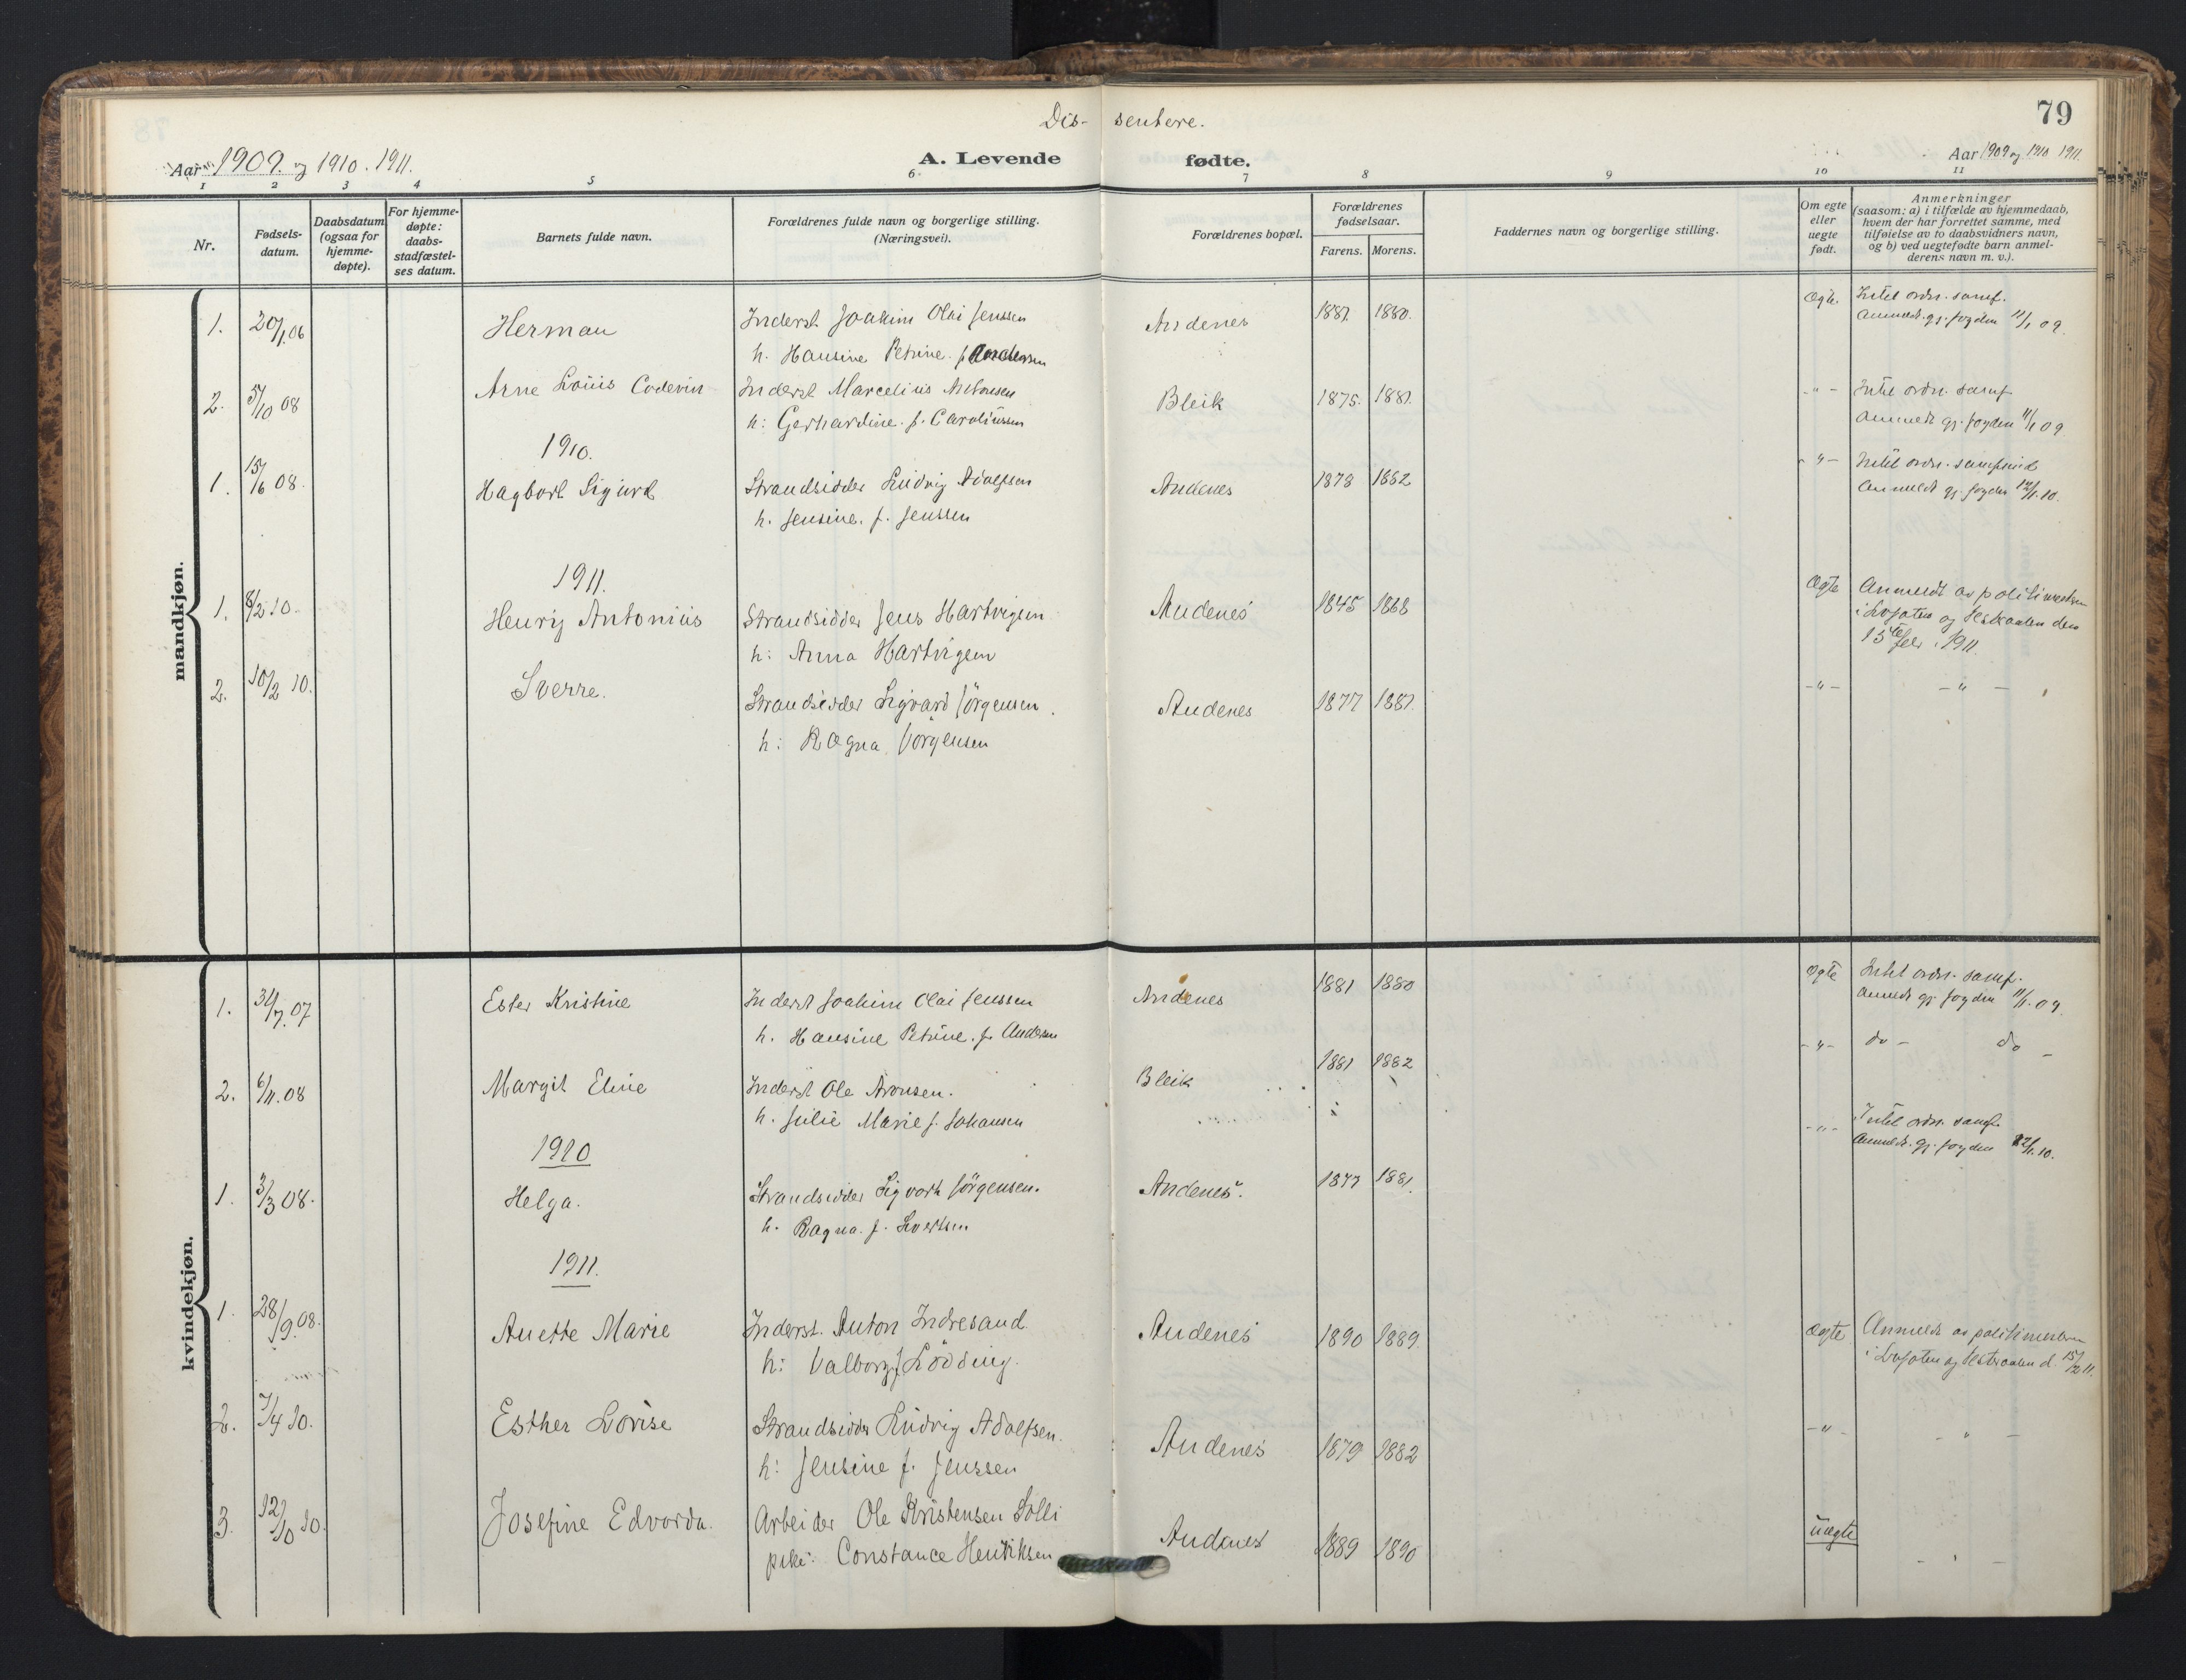 Dis- sentere.
79
Aar 1909. og 1910. 1911.
A. Levende fødte.
Aar 1909 og 1910 1911.
1 2 3 4 5 6 7 8 9 10 11
Nr.
Fødsels-
datum.
Daabsdatum
(ogsaa for
hjemme-
døpte).
For hjemme-
døpte:
daabs-
stadfæstel-
ses datum.
Barnets fulde navn.
Forældrenes fulde navn og borgerlige stilling.
(Næringsvei).
Forældrenes bopæl.
Forældrenes
fødselsaar.
Farens. Morens.
Faddernes navn og borgerlige stilling.
Om egte
eller
uegte
født.
Anmerkninger
(saasom: a) i tilfælde av hjemmedaab,
hvem der har forrettet samme, med
tilføielse av to daabsvidners navn,
og b) ved uegtefødte barn anmel-
derens navn m. v.).
mandkjøn.
1. 20/1 06 Herman Inderst Joakim Olai Jenssen Andenes 1881. 1880. Ægte. Intet ordn. samf.
h. Hansine Petrine. f. Andersen Anmeldt. gj. fogden 11/1 09.
2. 5/10 08 Arne Louis Coderin Inderst Marcelius Antonsen Bleik 1875. 1881. -"- Intet ordn. samf
h: Gerhardine. f. Caroliussen Anmeldt gj. fogden 11/1 09
1910.
1. 15/6 08. Hagbart Sigurd Strandsidder Ludvig Adolfsen Andenes 1878 1882 -"- Intet ordn. samfund
h. Jensine. f. Jenssen Anmeldt gj. fogden 12/1.10.
1911.
1. 8/2 10. Henrij Antonius Strandsidder Jens Hartvigsen Andenes 1845 1868 Ægte Anmeldt av politimesteren
h: Anna Hartvigsen i Lofoten og Vesteraalen den
15de febr. 1911.
2. 10/2 10. Sverre. Strandsidder Sigvard Jörgensen. Andenes 1877 1881. -"- -"-
h: Ragna Jörgensen
kvindekjøn.
1. 31/7. 07 Ester Kristine Inderst Joakim Olai Jenssen Andenes 1881 1880 Ægte Intet ordn. samf.
h. Hansine Petrine. f. Andersen Anmeldt gj. fogden 11/1. 09.
2. 6/11. 08 Margit Eline Inderst Ole Aronsen. Bleik 1881 1882 -"- do - do -
h. Julie Marie f. Johansen
1910
1. 3/3 08. Helga. Strandsidder Sigvart Jörgensen. Andenes. 1877 1881. -"- Intet ordn. samf.
h. Ragna. f. Sivertsen Anmeldt. gj. fogden 12/1.10.
1911.
1. 28/9. 08. Anette Marie Inderst. Anton Indresand Andenes 1890 1889. Ægte Anmeldt av politimesteren
h: Valborg f. Lödding. i Lofoten og Vesteraalen d. 15/2 11.
2. 7/4 10. Esther Lovise Strandsidder Ludvig Adolfsen. Andenes 1879 1882 -"- -"-
h: Jensine f. Jenssen
3. 12/10 10. Josefine Edvarda. Arbeider Ole Kristensen Solli Andenes 1889 1890 Uægte -"-
pike: Constance Henriksen